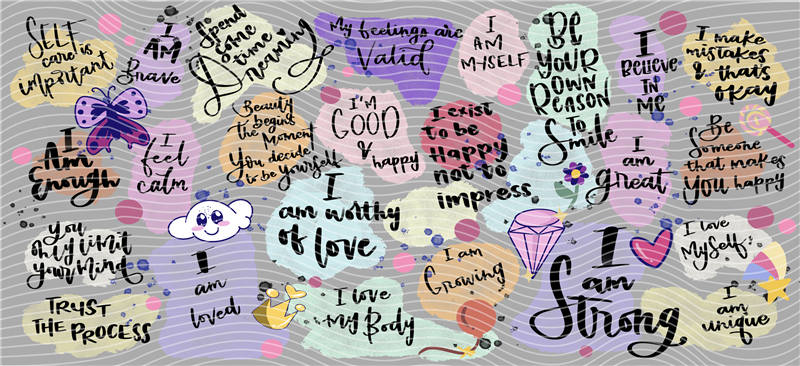 SELF
care is
important
I
AM
Brave
Spend
some
time
Dreaming
My feelings are
Valid
I
AM
MYSELF
BE
YOUR
OWN
REASON
To
Smile
I
BELIEVE
IN
ME
I make
mistakes
& that's
okay
I
Am
Enough
I
feel
calm
Beauty
begins
the moment
you decide
to be yourself
I'M
GOOD
& happy
I exist
to be
Happy
not to
impress
I
am
great
Be
Someone
that makes
you happy
you
only limit
your mind
I
am
loved
I
am worthy
of love
I am
Growing
I
am
Strong
I love
Myself
TRUST
THE PROCESS
I love
my Body
I
am
unique